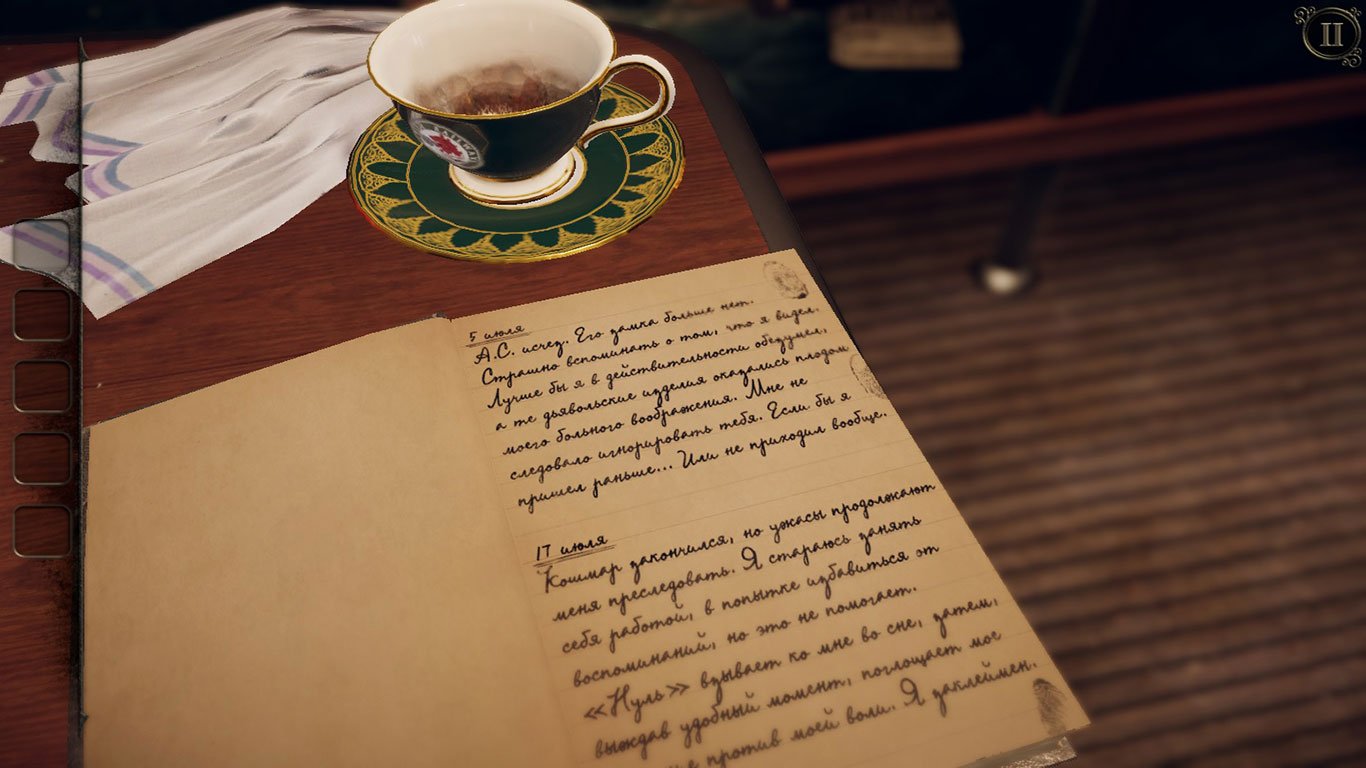 5 июля
А.С. исчез. Его замка больше нет.
Страшно вспоминать о том, что я видел.
Лучше бы я в действительности обезумел,
а те дьявольские изделия оказались плодом
моего больного воображения. Мне не
следовало игнорировать тебя. Если бы я
пришел раньше... Или не приходил вообще.
17 июля
Кошмар закончился, но ужасы продолжают
меня преследовать. Я стараюсь занять
себя работой, в попытке избавиться от
воспоминаний, но это не помогает.
«Нуль» взывает ко мне во сне, затем,
выждав удобный момент, поглощает мое
против моей воли. Я заклеймен.
II